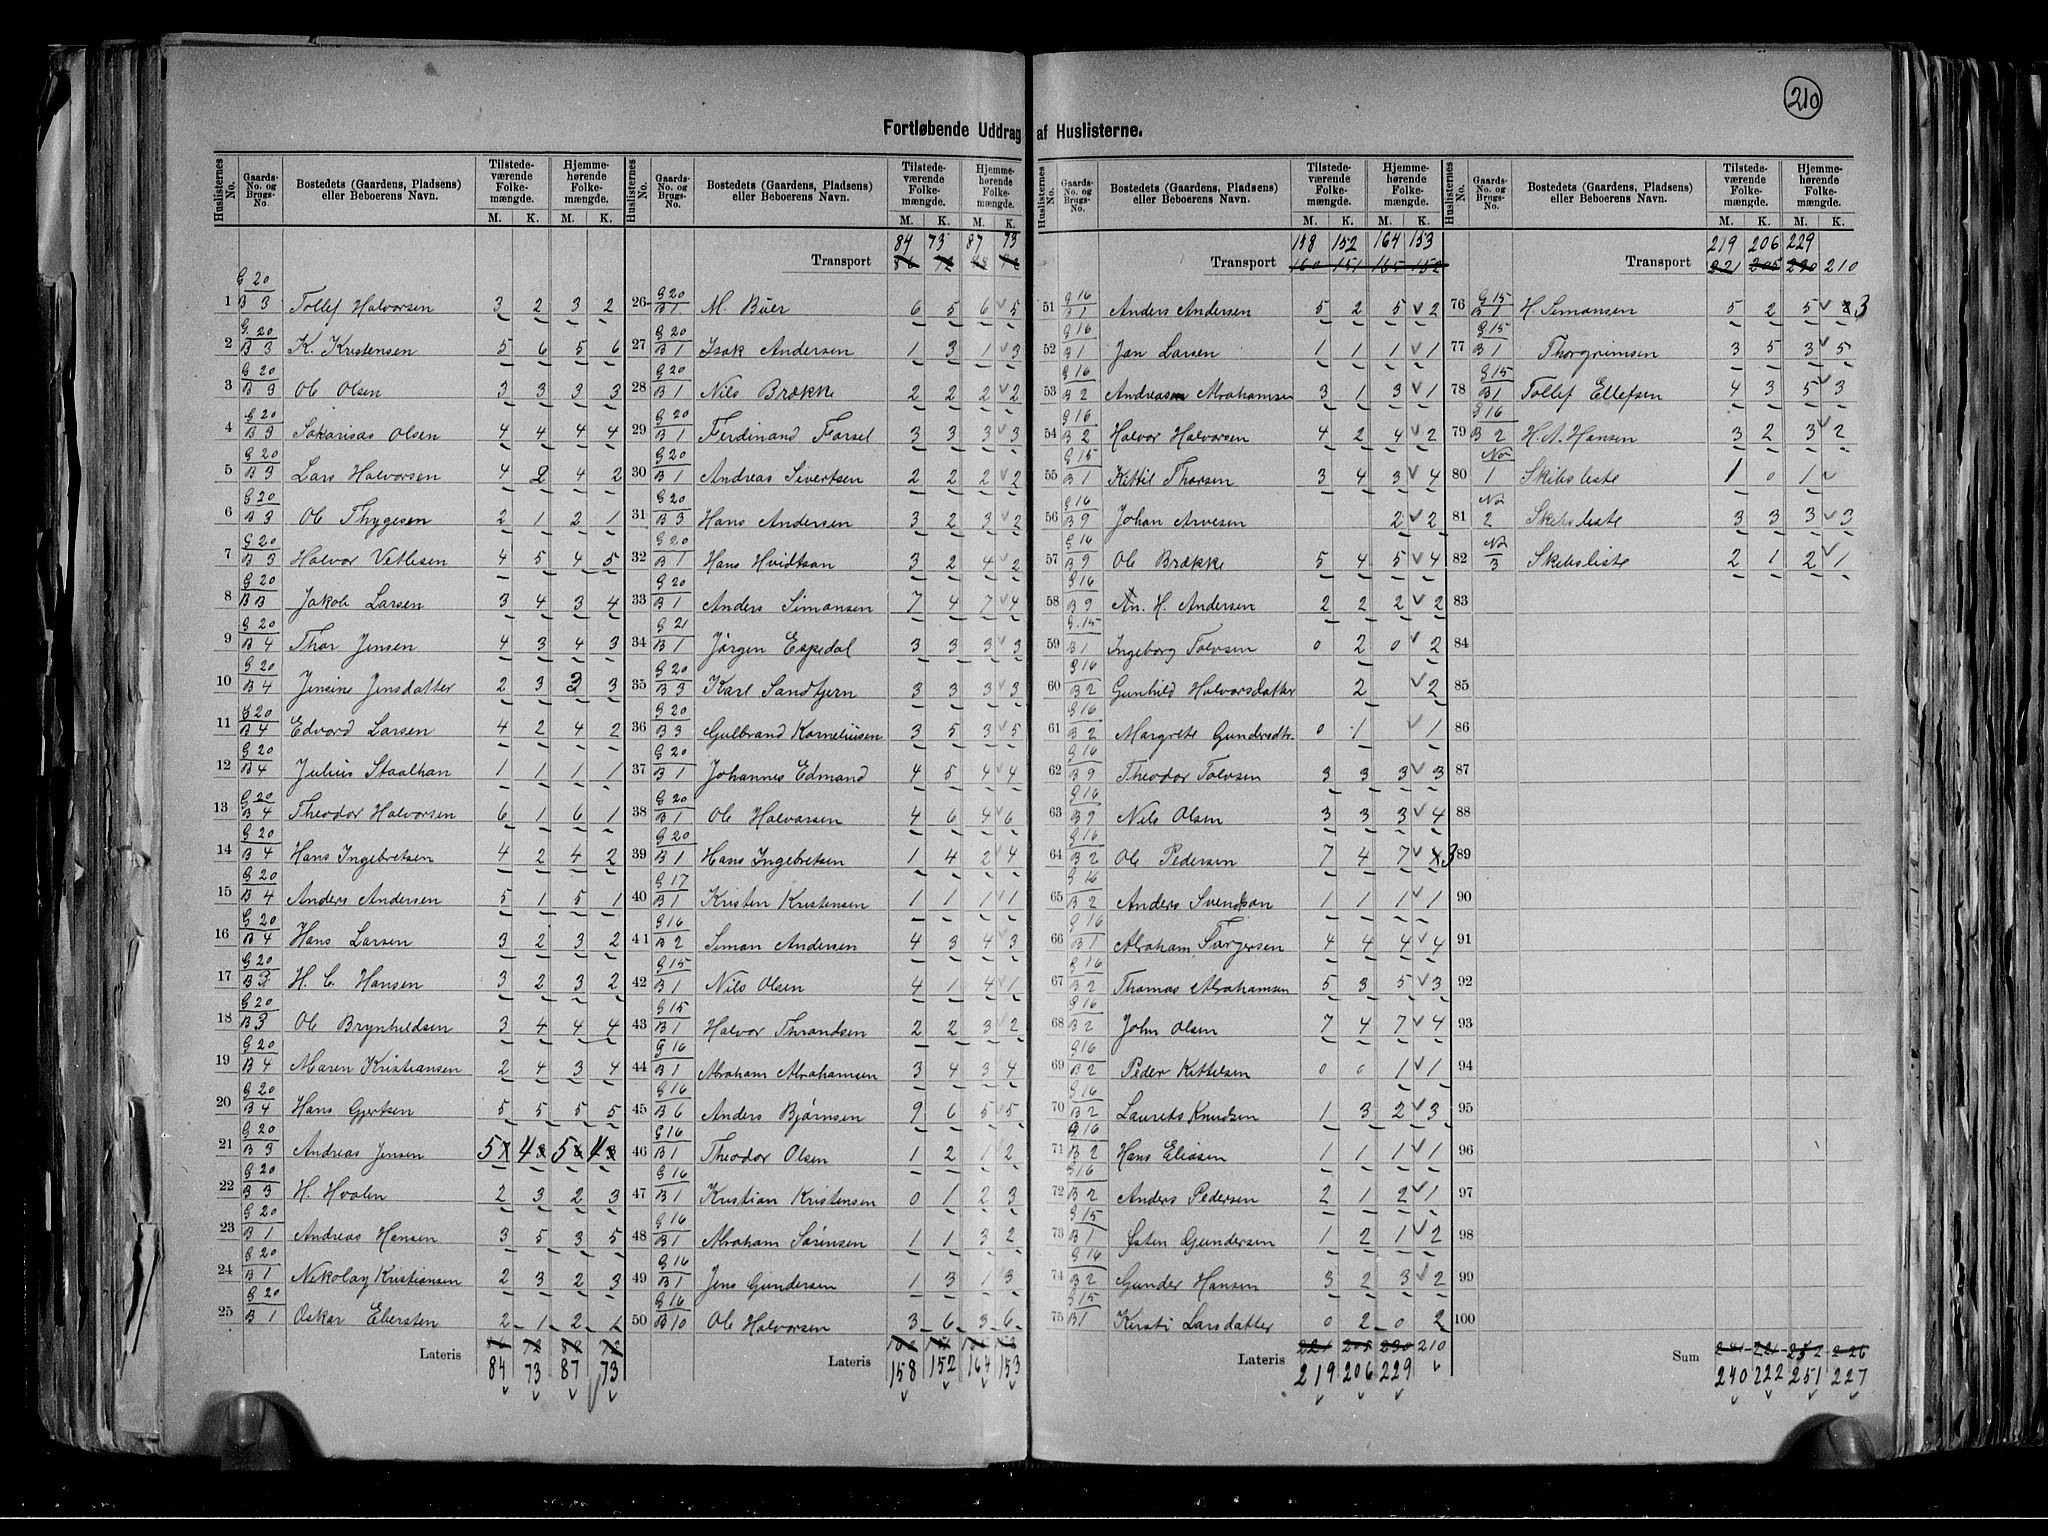 210
Fortløbende Uddrag af Huslisterne.
Huslisternes No. | Gaards-No. og Brugs-No. | Bostedets (Gaardens, Pladsens) eller Beboerens Navn. | Tilstedeværende Folkemængde. M. K. | Hjemmehørende Folkemængde. M. K.
1 G 20 B 3 Tollef Halvorsen 3 2 3 2
2 G 20 B 3 K. Kristensen 5 6 5 6
3 G 20 B 3 Ol Olsen 3 3 3 3
4 G 20 B 3 Sakarias Olsen 4 4 4 4
5 G 20 B 3 Lars Halvorsen 4 2 4 2
6 G 20 B 3 Ol Thygesen 2 1 2 1
7 G 20 B 3 Halvor Vetlesen 4 5 4 5
8 G 20 B 3 Jakob Larsen 3 4 3 4
9 G 20 B 4 Thor Jensen 4 3 4 3
10 G 20 B 4 Jensine Jensdatter 2 3 3 3
11 G 20 B 4 Edvard Larsen 4 2 4 2
12 G 20 B 4 Julius Staalhan 1 1 1 1
13 G 20 B 4 Theodor Halvorsen 6 1 6 1
14 G 20 B 4 Hans Ingebretsen 4 2 4 2
15 G 20 B 4 Anders Andersen 5 1 5 1
16 G 20 B 4 Hans Larsen 3 2 3 2
17 G 20 B 3 H. C. Hansen 3 2 3 2
18 G 20 B 3 Ol Brynhildsen 3 4 4 4
19 G 20 B 4 Maren Kristiansen 2 4 3 4
20 G 20 B 4 Hans Gjertsen 5 5 5 5
21 G 20 B 3 Andreas Jensen 5 4 5 4
22 G 20 B 3 H. Hvalen 2 3 2 3
23 G 20 B 1 Andreas Hansen 3 5 3 5
24 G 20 B 1 Nikolay Kristiansen 2 3 2 3
25 G 20 B 1 Oskar Ebersten 2 1 2 1
Lateris 84 73 87 73
Huslisternes No. | Gaards-No. og Brugs-No. | Bostedets (Gaardens, Pladsens) eller Beboerens Navn. | Tilstedeværende Folkemængde. M. K. | Hjemmehørende Folkemængde. M. K.
Transport 84 73 87 73
26 G 20 B 1 M. Büer 6 5 6 5
27 G 20 B 1 Isak Andersen 1 3 1 3
28 G 20 B 1 Nils Brække 2 2 2 2
29 G 20 B 1 Ferdinand Forsel 3 3 3 3
30 G 20 B 1 Andreas Sivertsen 2 2 2 2
31 G 20 B 3 Hans Andersen 3 2 3 2
32 G 20 B 1 Hans Hvidtsan 3 2 4 2
33 G 20 B 1 Anders Simonsen 7 4 7 4
34 G 21 B 1 Jørgen Espedal 3 3 3 3
35 G 20 B 3 Karl Sandtjern 3 3 3 3
36 G 20 B 3 Gulbrand Korneliusen 3 5 3 5
37 G 20 B 1 Johannes Edmand 4 5 4 4
38 G 20 B 1 Ol Halvorsen 4 6 4 6
39 G 20 B 1 Hans Ingebretsen 1 4 2 4
40 G 17 B 1 Kristen Kristensen 1 1 1 1
41 G 16 B 2 Simon Andersen 4 3 4 3
42 G 15 B 1 Nils Olsen 4 1 4 1
43 G 15 B 1 Halvor Throndsen 2 2 3 2
44 G 16 B 1 Abraham Abrahamsen 3 4 3 4
45 G 16 B 6 Anders Bjørnsen 9 6 5 5
46 G 16 B 1 Theodor Olsen 1 2 1 2
47 G 16 B 1 Kristian Kristensen 0 1 2 3
48 G 16 B 1 Abraham Sørensen 1 1 3 2
49 G 16 B 1 Jens Gundersen 1 3 1 3
50 G 16 B 10 Ol Halvorsen 3 6 3 6
Lateris 158 152 164 153
Huslisternes No. | Gaards-No. og Brugs-No. | Bostedets (Gaardens, Pladsens) eller Beboerens Navn. | Tilstedeværende Folkemængde. M. K. | Hjemmehørende Folkemængde. M. K.
158 152 164 153
Transport 160 151 165 152
51 G 16 B 1 Anders Andersen 5 2 5 2
52 G 16 B 1 Jan Larsen 1 1 1 1
53 G 16 B 2 Andreas Abrahamsen 3 1 3 1
54 G 16 B 2 Halvor Halvorsen 4 2 4 2
55 G 15 B 1 Kittil Thorsen 3 4 3 4
56 G 16 B 9 Johan Arvesen 2 2
57 G 16 B 9 Ol Brække 5 4 5 4
58 G 16 B 9 An. H. Andersen 2 2 2 2
59 G 15 B 1 Ingeborg Tolvsen 0 2 0 2
60 G 16 B 2 Gunhild Halvorsdatter 2 2
61 G 16 B 2 Margrete Gundersdtr. 0 1 1
62 G 16 B 9 Theodor Tolvsen 3 3 3 3
63 G 16 B 9 Nils Olsen 3 3 3 4
64 G 16 B 2 Ol Pedersen 7 4 7 3
65 G 16 B 2 Anders Svendsan 1 1 1 1
66 G 16 B 1 Abraham Torgersen 4 4 4 4
67 G 16 B 2 Thomas Abrahamsen 5 3 5 3
68 G 16 B 2 John Olsen 7 4 7 4
69 G 16 B 2 Peder Kittelsen 0 0 1 1
70 G 16 B 2 Laurets Knudsen 1 3 2 3
71 G 16 B 2 Hans Eliasen 1 1 1 1
72 G 16 B 2 Anders Pedersen 2 1 2 1
73 G 15 B 1 Østen Gundersen 1 2 1 2
74 G 16 B 2 Gunder Hansen 3 2 3 2
75 G 15 B 1 Kirsti Larsdatter 0 2 0 2
Lateris 221 205 230 210
219 206 229
Huslisternes No. | Gaards-No. og Brugs-No. | Bostedets (Gaardens, Pladsens) eller Beboerens Navn. | Tilstedeværende Folkemængde. M. K. | Hjemmehørende Folkemængde. M. K.
219 206 229
Transport 221 205 230 210
76 G 15 B 1 H. Simonsen 5 2 5 3
77 G 15 B 1 Thorgrimsen 3 5 3 5
78 G 15 B 1 Tollef Ellefsen 4 3 5 3
79 G 16 B 2 H. A. Hansen 3 2 3 2
80 No 1 Skibsliste 1 0 1
81 No 2 Skibsliste 3 3 3 3
82 No 3 Skibsliste 2 1 2 1
83
84
85
86
87
88
89
90
91
92
93
94
95
96
97
98
99
100
Sum 241 221 252 226
240 222 251 227